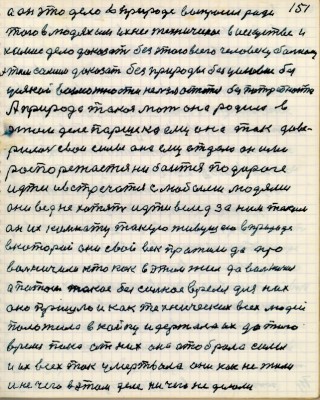 151
а он это дело в природе выпросил ради
того в людях им ихнее техническое в искустве и
химие дело доказать без этого всего человеку больному
этим самим доказать без природы без условий без
всякой возможности
А природа такая мож она родила в
этом деле паршека ему она так дове-
рилась свои силы она ему отдала он ими
распоряжается ни боится по дороге
идти и встречатся с любыми людями
они ведь не хотят идти вслед за ним таким
он их комнату такую живущего в природе
в которой они свой век прожили да про
волничили кто как в этом жил да волничил
а потом такое бессилное время для них
оно пришло и как технических всех людей
положила в койку и держала их до того
время пока от них она отобрала силы
и их всех так умертвила они как не жили
и не чего в этом деле ничего не делали